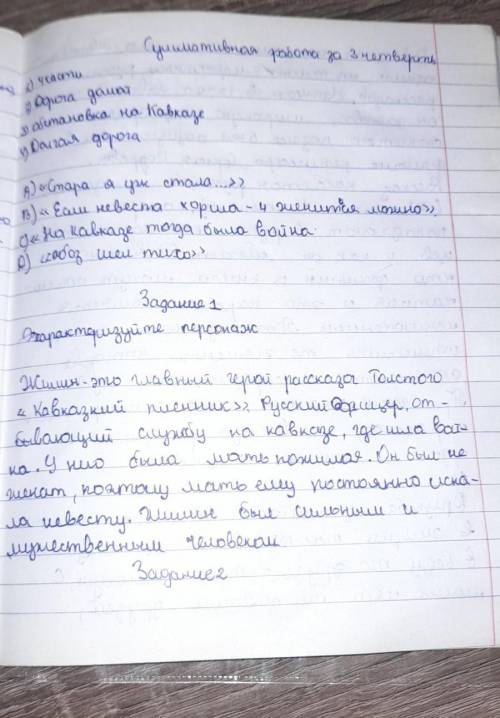 Суммативная работа за 3 четверть
1) части
2) Дорога домой
3) обстановка на Кавказе
4) Долгая дорога
A) «Стара я уж стала...»
B) «Если невеста хорша - и женится можно»
C) «На Кавказе тогда была война
D) «обоз шел тихо»
Задание 1
Охарактеризуйте персонаж
Жилин-это главный герой рассказа Толстого
«Кавказкий пленник» Русский офицер, от-
бывающий службу на кавказе, где шла вой-
на. У нио была мать пожилая. Он был не
женат, поэтому мать ему постоянно иска-
ла невесту. Жилин был сильным и
мужественным человеком
Задание 2